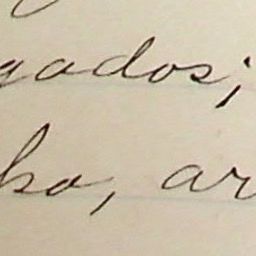 gados;
ho, ar